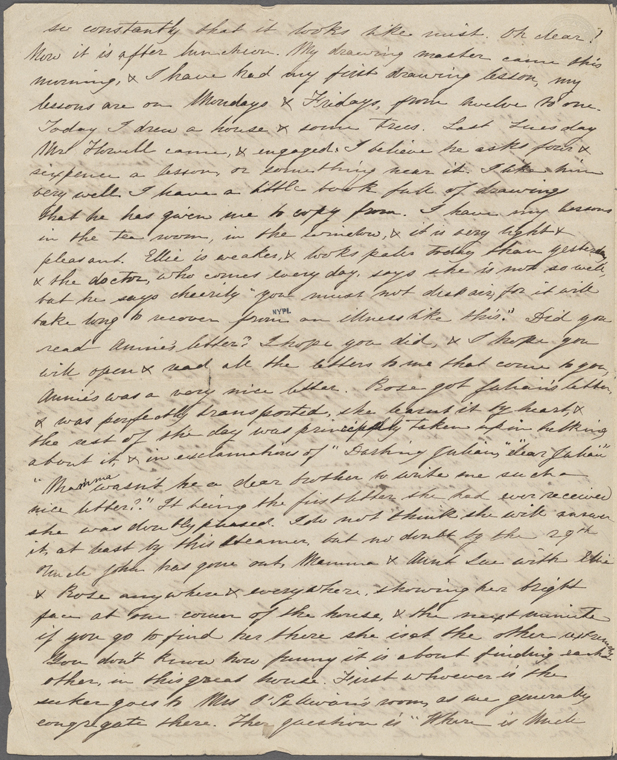 so constantly that it looks like mist. Oh dear!
Now it is after luncheon. My drawing master came this
morning, & I have had my first drawing lesson, my
lessons are on Mondays & Fridays, from twelve to one.
Today I drew a house & some trees. Last Tuesday
Mr Howell came, & engaged. I believe he asks four &
sixpence a lesson, or something near it. I like him
very well. I have a little book full of drawing
that he has given me to copy from. I have my lessons
in the tea room, in the window, & it is very light &
pleasant. Ellie is weaker, & looks paler today than yesterday
& the doctor, who comes every day, says she is not so well,
but he says cheerily "you must not despair, for it will
take long to recover from an illness like this." Did you
NYPL
read Annie's letter? I hope you did, & I hope you
will open & read all the letters to me that come to you,
Annie's was a very nice letter. Rose got Julian's letter,
& was perfectly transported, she learnt it by heart, &
the rest of the day was principally taken up in talking
about it, & in exclamations of "Darling Julian, "dear Julian"
"Mamma wasn't he a dear brother to write me such a
nice letter?" It being the first letter she had ever received
she was doubly pleased. I do not think she will answer
it, at least by this steamer, but no doubt by the 29th
Uncle John has gone out, Mamma & Aunt Lue with Ellie
& Rose anywhere & everywhere, showing her bright
face at one corner of the house, & the next minute
if you go to find her there she is at the other
You don't know how funny it is about finding each
other, in this great house. First whoever is the
seeker goes to Mrs O'Sullivan's room, as we generally
congregate there. Then question is "Where is Uncle